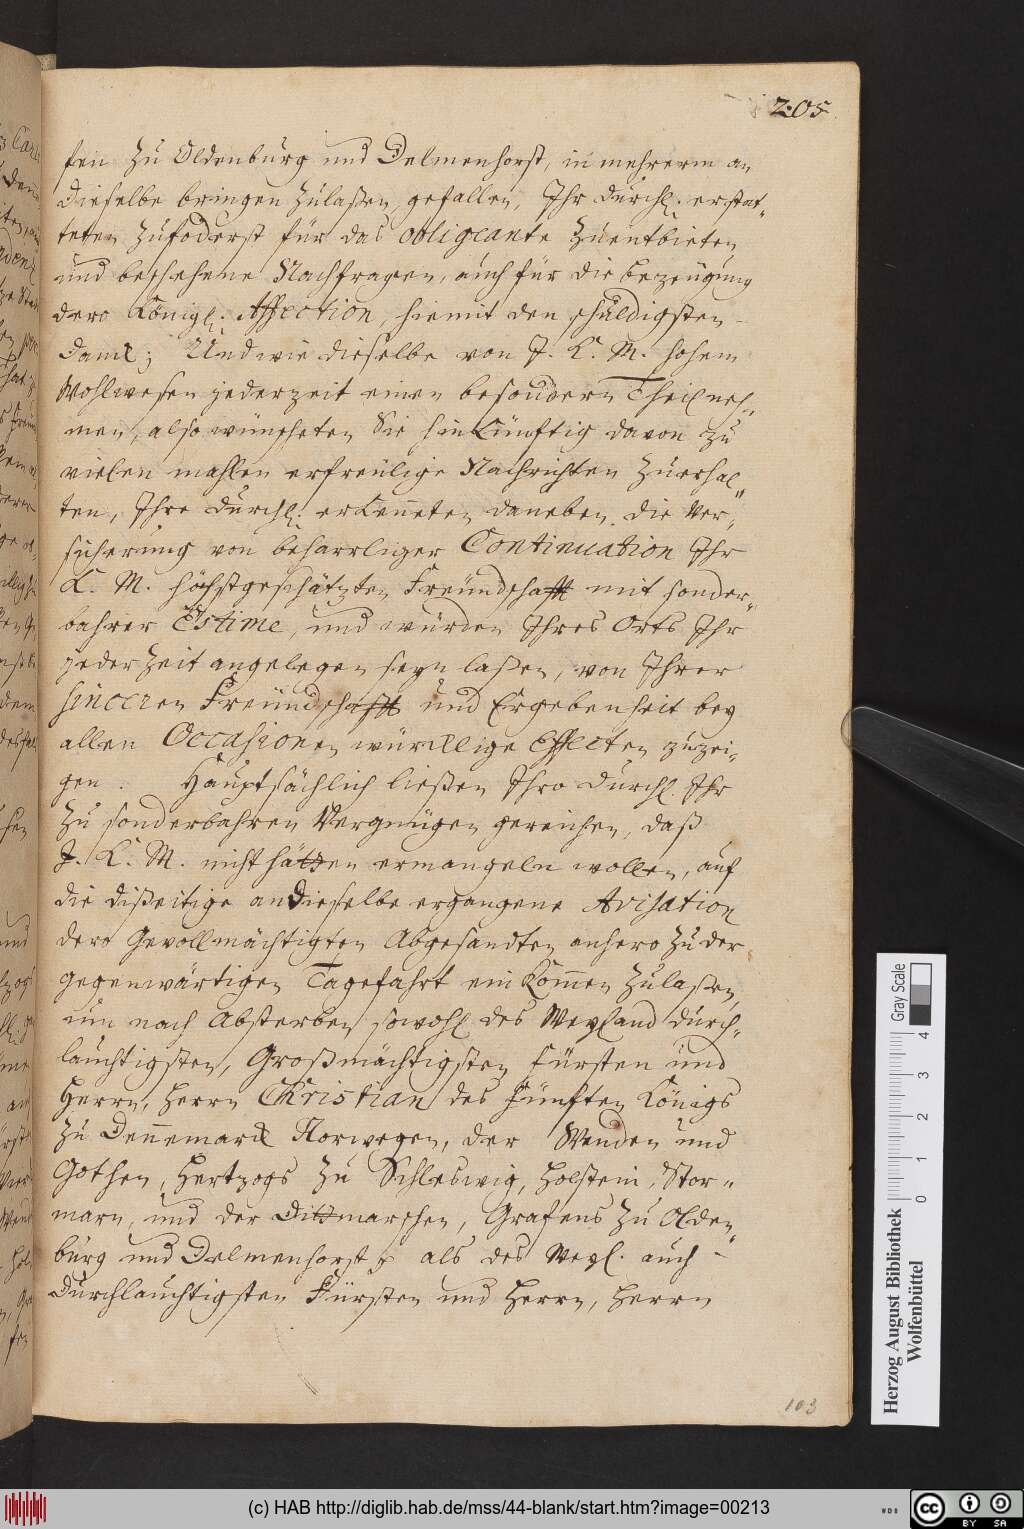 205
fen zu Oldenburg und Delmenhorst, in mehrerm an
Dieselbe bringen zulaßen, gefallen, Ihr Durchl. erstat-
teten zufoderst für das obligeante zuentbieten
und beschehene Nachfragen, auch für die bezeugung
dero Königl. Affection, hiemit den schuldigsten
Danck; Und wie dieselbe von J. K. M. hohem
Wohlwesen jederzeit einen besondern Theil neh-
men, also wünscheten Sie hinkünftig davon zu
vielen mahlen erfreulige Nachrichten zuerhal-
ten, Ihre Durchl. erkenneten daneben die Ver-
sicherung von beharrliger Continuation Ihr
K. M. höchstgeschätzten Freundschafft mit sonder-
bahrer Estime, und würden Ihres Orts Ihr
jeder Zeit angelegen seyn laßen, von Ihrer
sinceren Freundschafft und Ergebenheit bey
allen Occasionen würcklige Effecten zuzei-
gen. Hauptsächlich ließen Ihro Durchl. Ihr
zu sonderbahren Vergnügen gereichen, daß
J. K. M. nicht hätten ermangeln wollen, auf
die dißeitige an Dieselbe ergangene Avisation
dero Gevollmächtigten Abgesandten anhero zu der
gegenwärtigen Tagefahrt ein kommen zulaßen,
um nach Absterben sowohl des Weyland Durch-
lauchtigsten, Großmächtigsten Fürsten und
Herrn, Herrn Christian des Fünften Königs
zu Dennemarck Norwegen, der Wenden und
Gothen, Hertzogs zu Schleswig, Holstein, Stor-
marn, und der Dittmarschen, Grafens zu Olden-
burg und Delmenhorst als des Weyl. auch
Durchlauchtigsten Fürsten und Herrn, Herrn
103
Herzog August Bibliothek
Wolfenbüttel
Gray Scale
0 1 2 3 4
(c) HAB http://diglib.hab.de/mss/44-blank/start.htm?image=00213
WDB
cc BY SA